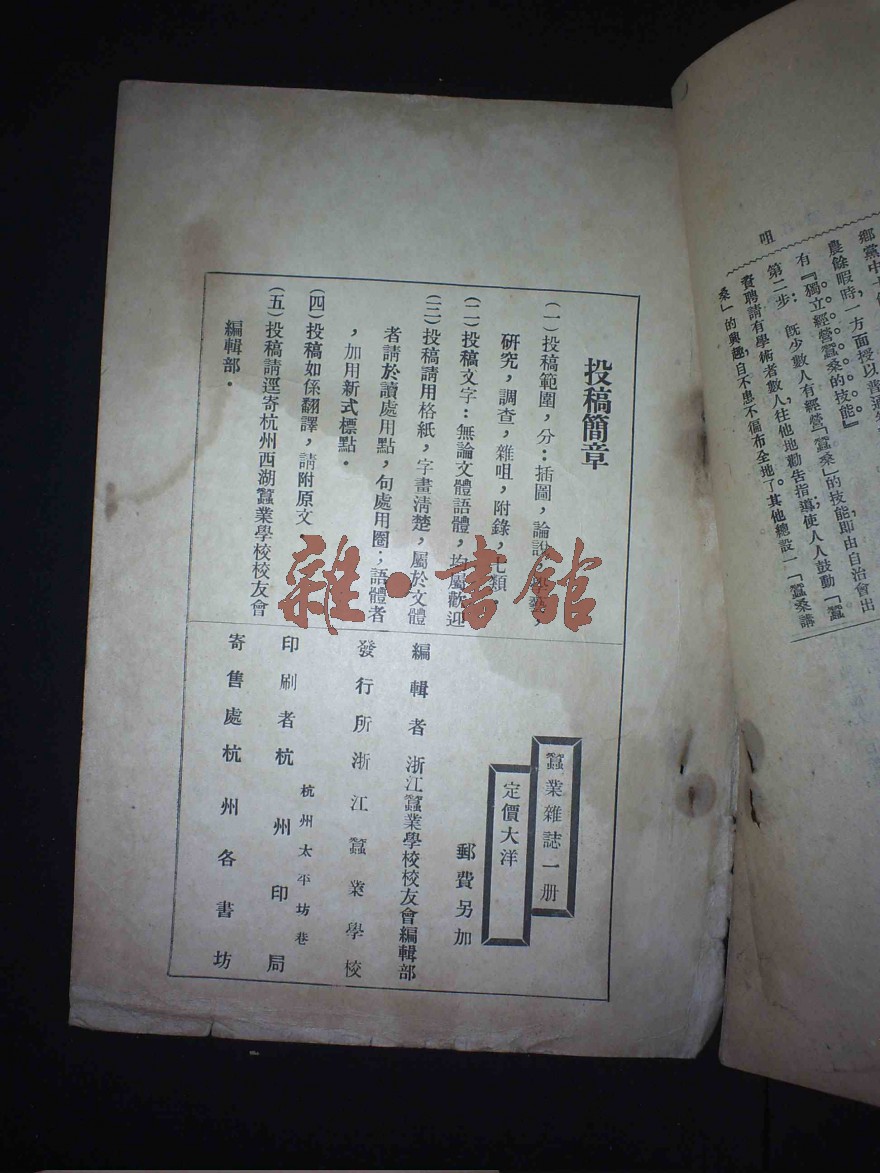 投稿簡章
(一)投稿範圍,分:插圖,論說,學藝,
研究,調查,雜咀,附錄,七類.
(二)投稿文字:無論文體語體,均屬歡迎
(三)投稿請用格紙,字畫清楚,屬於文體
者請於讀處用點,句處用圈;語體者
,加用新式標點.
(四)投稿如係翻譯,請附原文.
(五)投稿請逕寄杭州西湖蠶業學校校友會
編輯部.
蠶業雜誌一册
定價大洋
郵費另加
編輯者 浙江蠶業學校校友會編輯部
發行所浙江蠶業學校
印刷者杭州印局
杭州太平坊巷
寄售處杭州各書坊
雜·書館
農餘暇時,一方面授以普通
有『獨立經營蠶桑的技能』
第二步: 既少數人有經營「蠶桑」的技能,即由自治會出
資聘請有學術者數人,往他地勸告指導;使人人鼓動「蠶
桑」的興趣,自不患不徧布全地了。其他總設一「蠶桑講
咀